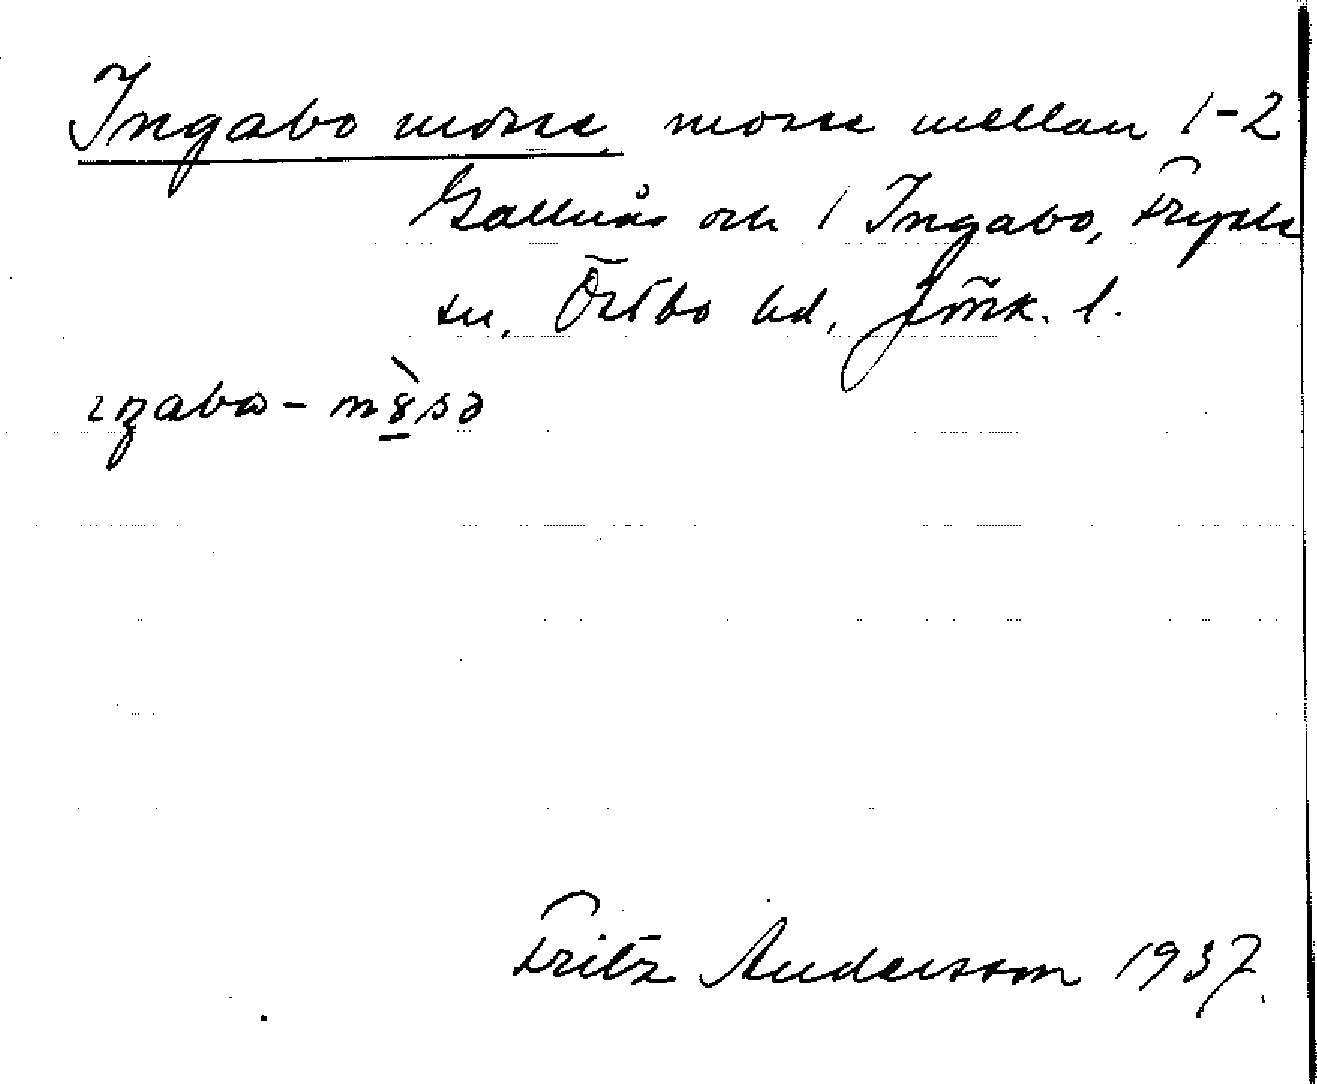 Ingabo mosse, mosse mellan 1-2
Gallnås och 1 Ingabo, Fryele
sn, Östbo hd, Jönk. l.
ıŋabω - m8sə
Fritz Andersson 1937.